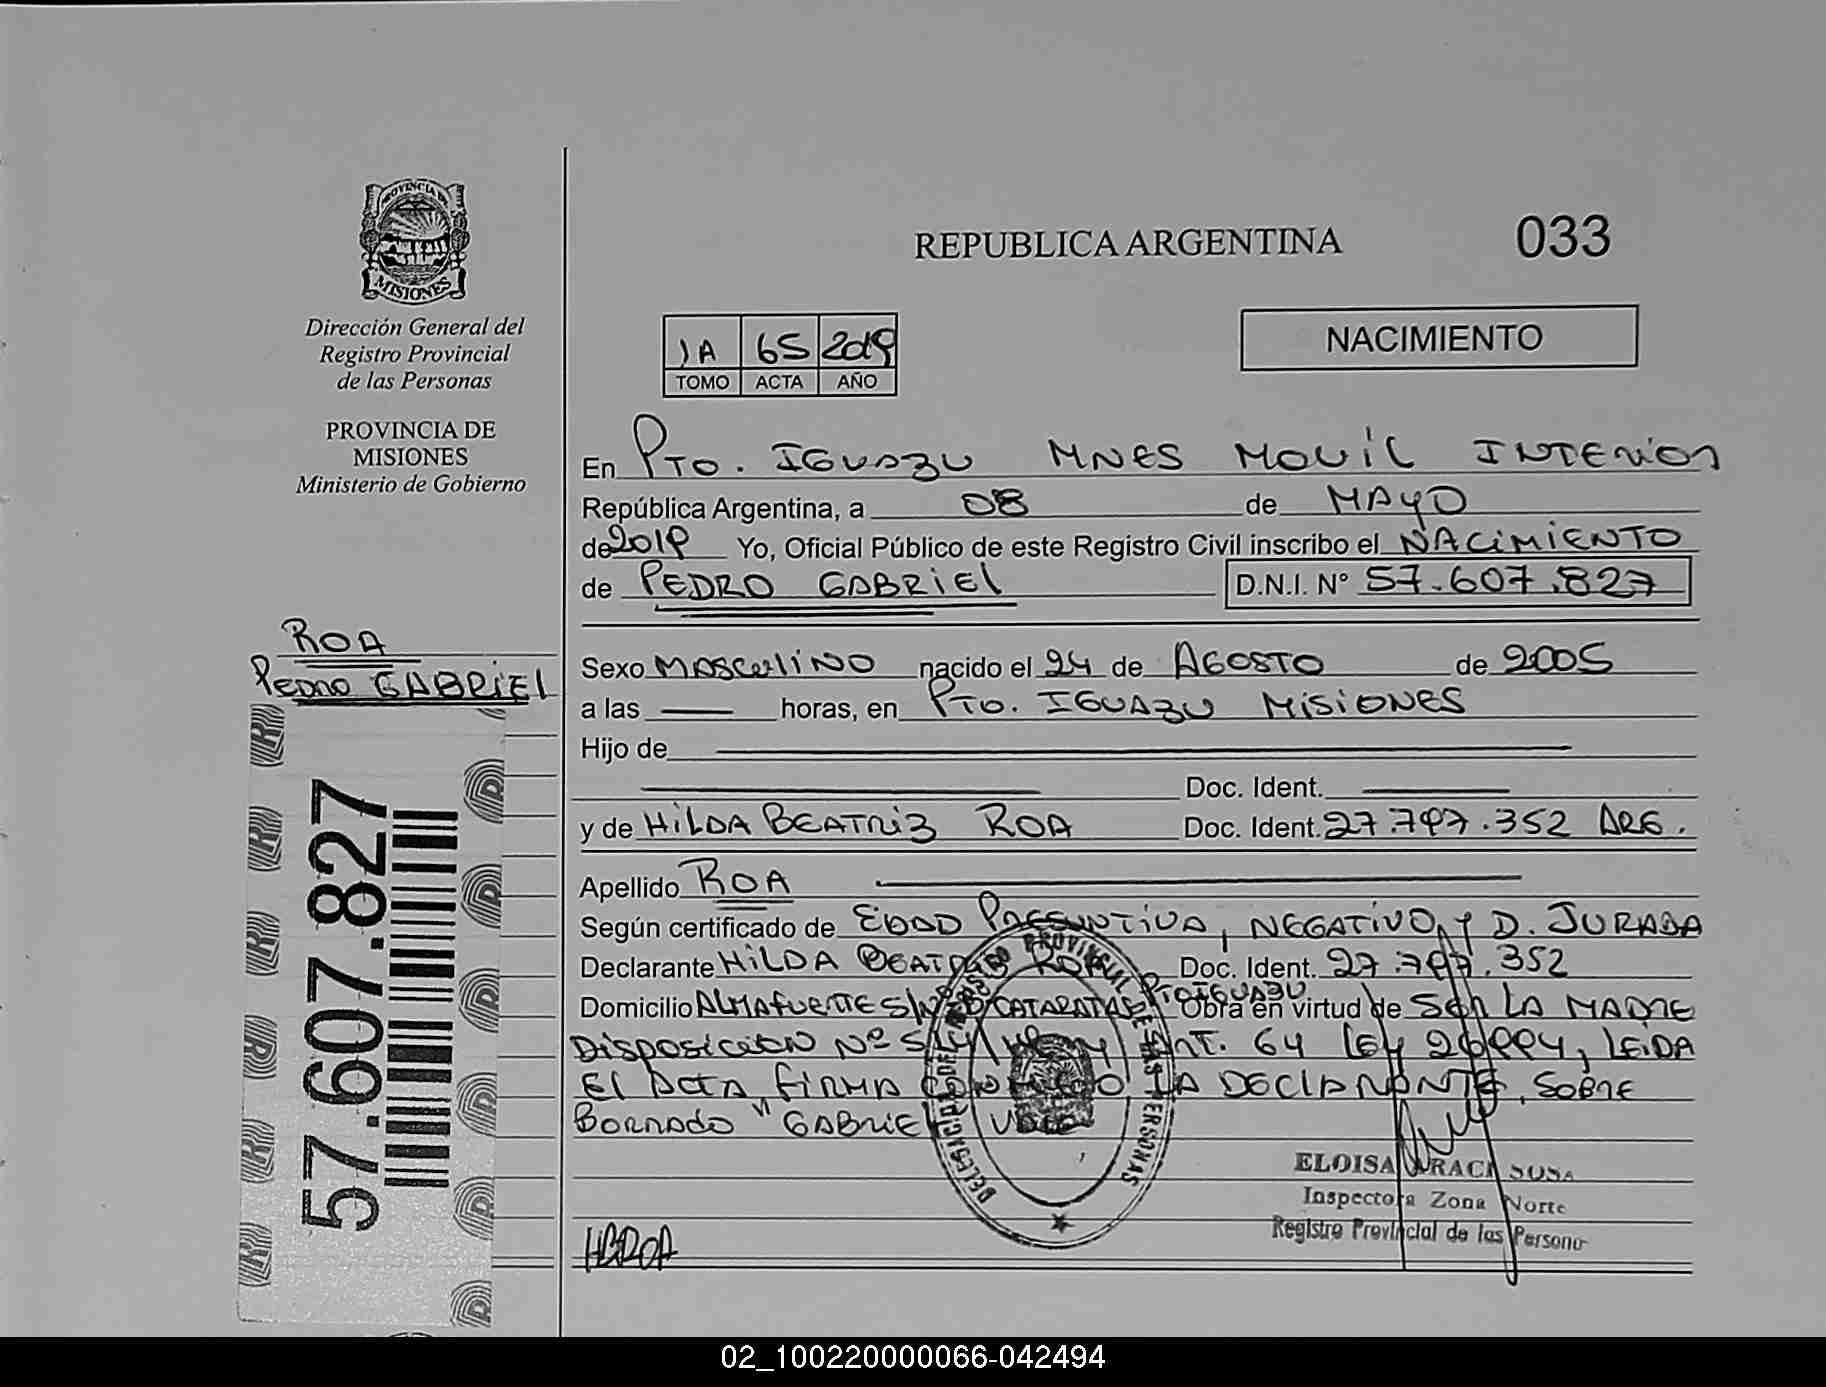 PROVINCIA DE
MISIONES
Dirección General del
Registro Provincial
de las Personas
PROVINCIA DE
MISIONES
Ministerio de Gobierno
ROA
PEDRO GABRIEL
57.607.827
REPUBLICA ARGENTINA
033
1A 65 2019
TOMO ACTA AÑO
NACIMIENTO
En PTO. IGUAZU MNES MOVIL INTERIOR
República Argentina, a 08 de MAYO
de 2019 Yo, Oficial Público de este Registro Civil inscribo el NACIMIENTO
de PEDRO GABRIEL D.N.I. N° 57.607.827
Sexo MASCULINO nacido el 24 de AGOSTO de 2005
a las — horas, en PTO. IGUAZU MISIONES
Hijo de
Doc. Ident.
y de HILDA BEATRIZ ROA Doc. Ident. 27.797.352 ARG.
Apellido ROA
Según certificado de EDAD PRESUNTIVA, NEGATIVO Y D. JURADA
Declarante HILDA BEATRIZ ROA Doc. Ident. 27.797.352
Domicilio ALMAFUERTE S/Nº Bº CATARATAS PTO IGUAZU Obra en virtud de SER LA MADRE
DISPOSICION Nº ART. 64 LEY 26994, LEIDA
EL ACTA FIRMA CONMIGO LA DECLARANTE, SOBRE
BORRADO "GABRIEL" VALE
DELEGACION REGISTRO PROVINCIAL DE LAS PERSONAS
ELOISA IRACI SOSA
Inspectora Zona Norte
Registro Provincial de las Persona
HBROA
02_100220000066-042494